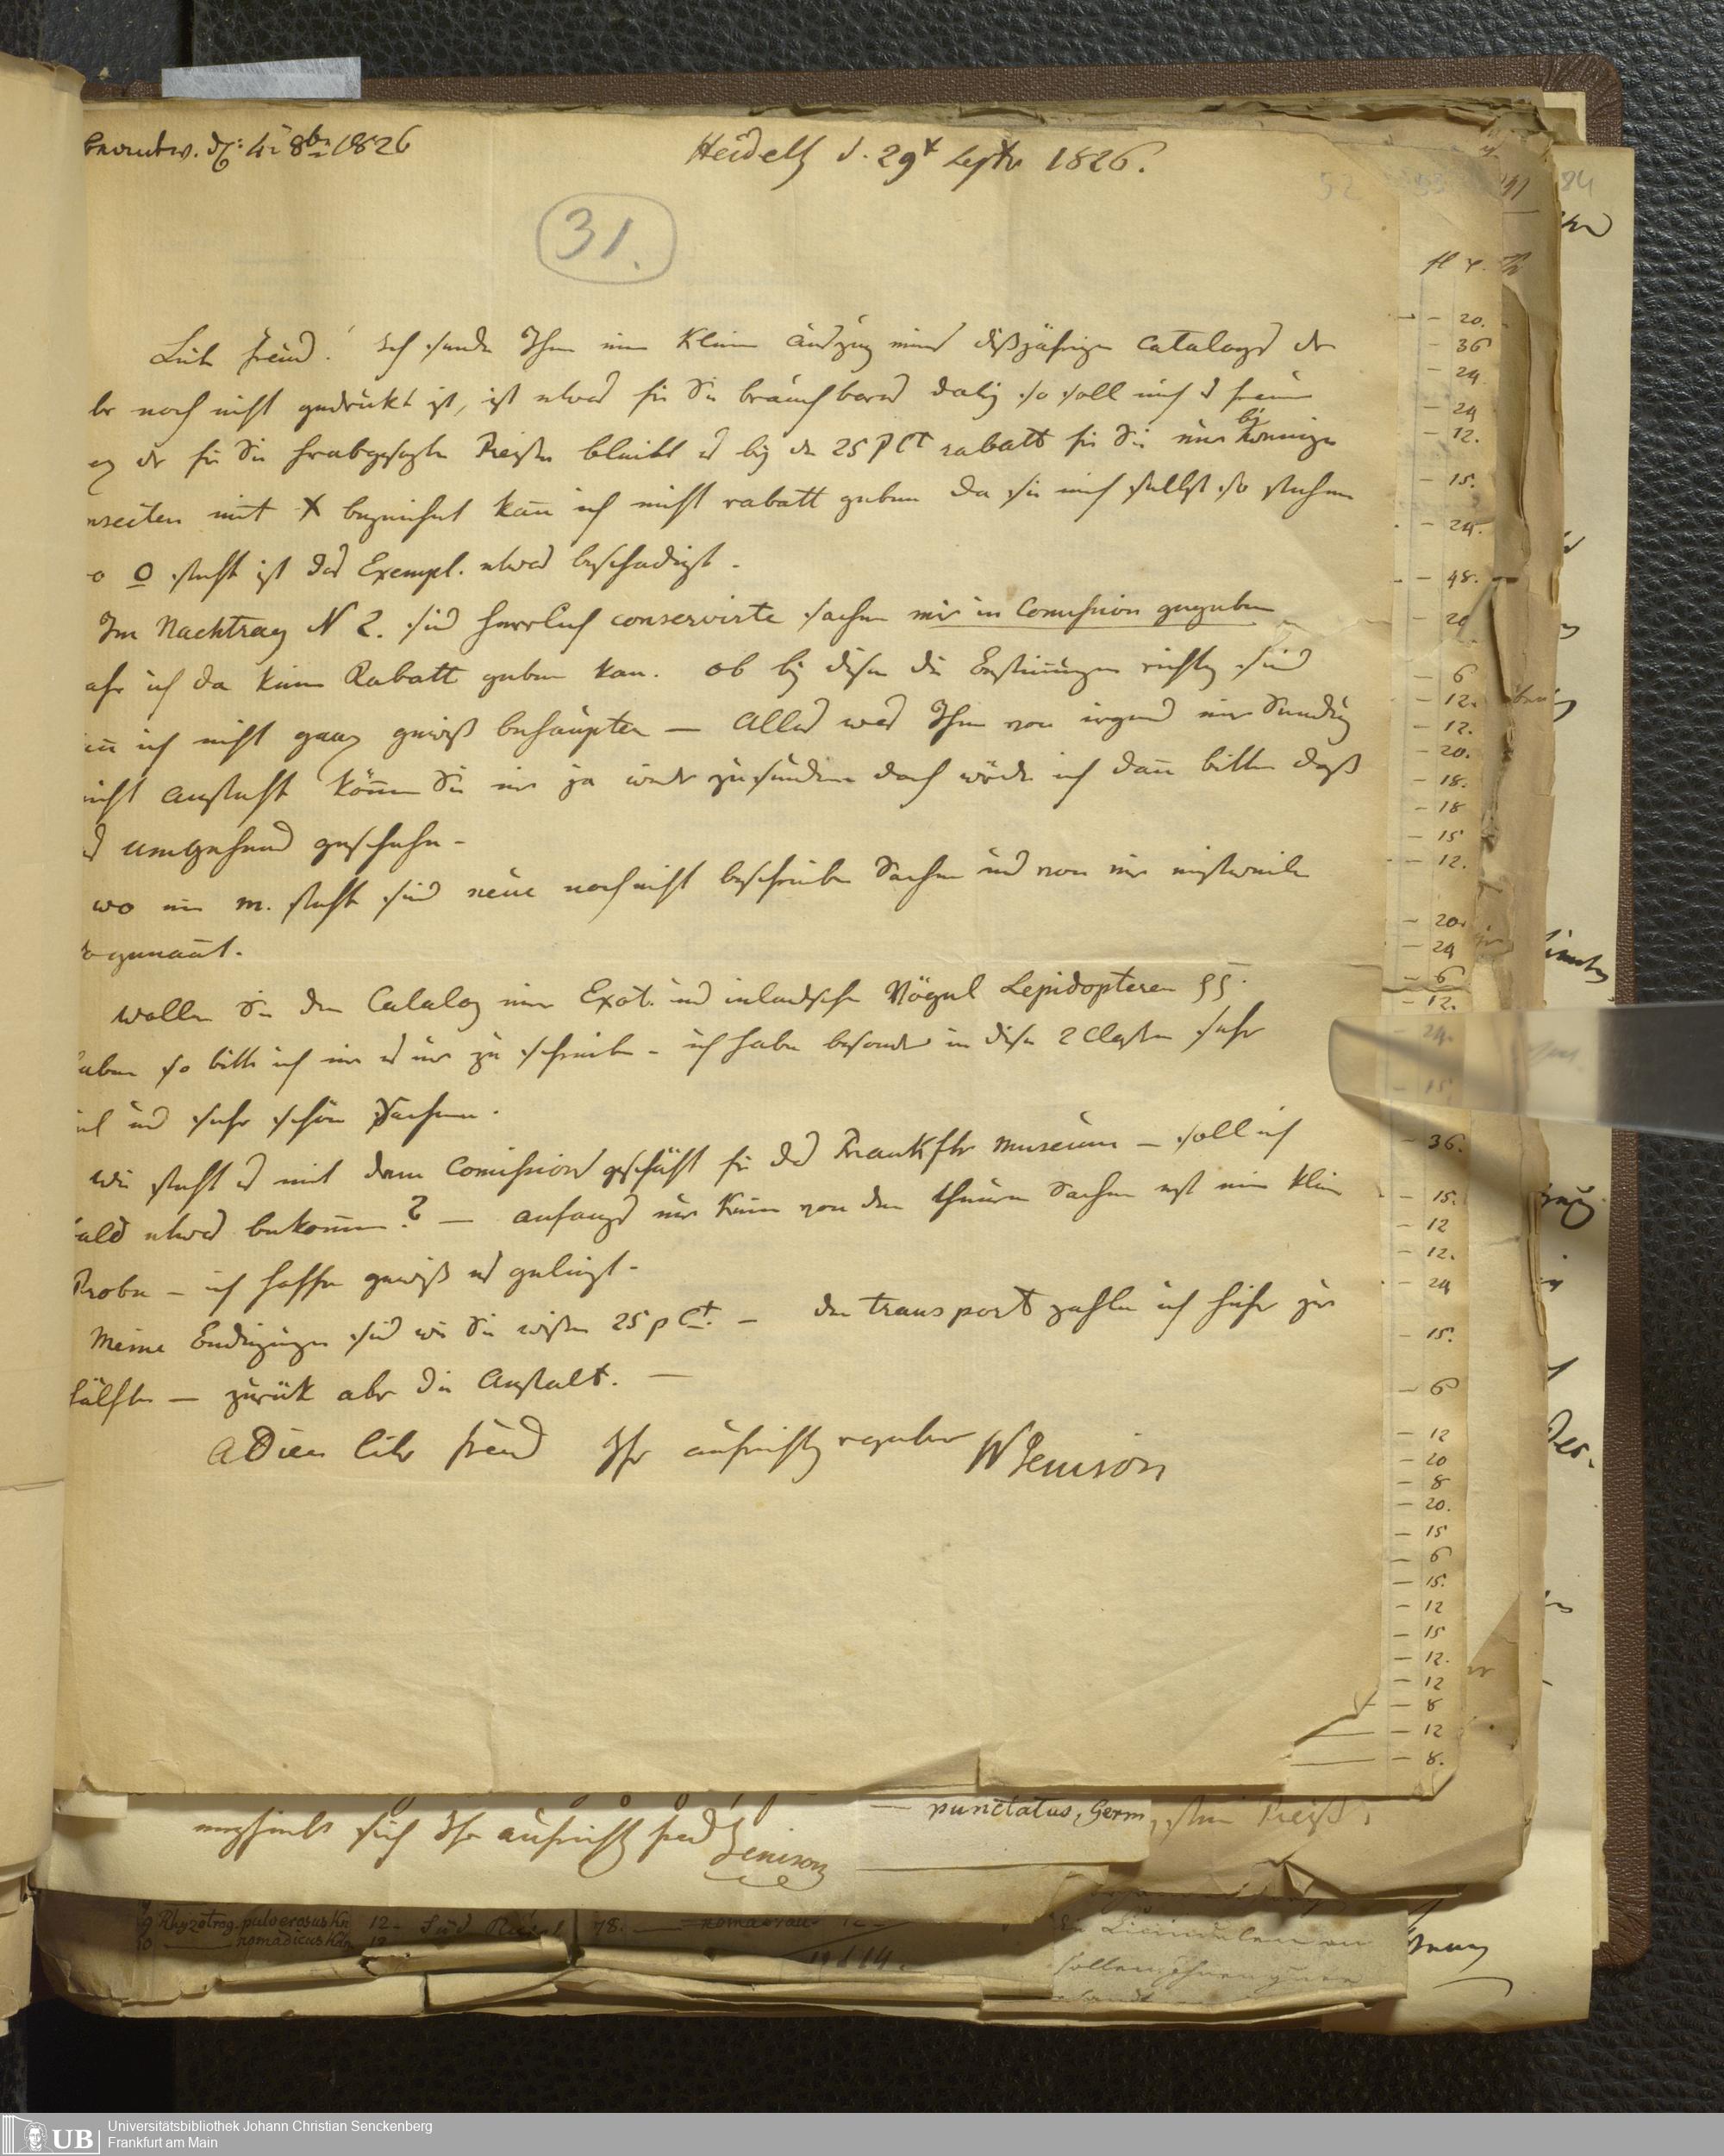 beantw. d: 4t 8br 1826
Heidelb d. 29t Septr 1826.
31.
Lieber Freund! Ich sende Ihnen einen kleinen Auszug meines dißjährigen Catalogs der
aber noch nicht gedruckt ist, ist etwas für Sie brauchbares dabey so soll mich es freuen
der für Sie herabgesezten Preißen bleibt es bey den 25 pCt rabatt für Sie nur bey weniger
mit X bezeichnet kan̄ ich nicht rabatt geben da sie mich selbst so stehen
wo O steht ist das Exempl. etwas beschadigt.
Im Nachtrag N 2. sind herrlich conservirte sachen mir in Com̄ission gegeben
ich da keinen Rabatt geben kan. ob bey diesen die Bestim̄ungen richtig sind
kan̄ ich nicht ganz gewiß behaupten — Alles was Ihnen von irgend einer Sendung
nicht ansteht kön̄en Sie mir ja wieder zusenden doch würde ich dan̄ bitten daß
es umgehend geschehe.
wo ein m. steht sind neue noch nicht beschriebene Sachen und von mir einstweilen
so genan̄t.
Wollen Sie den Catalog meiner Exot. und inlandischen Vögel Lepidopteren
haben so bitte ich mir es nur zu schreiben - ich habe besonders in diesen 2 Classen sehr
viel und sehr schöne Sachen.
Wie steht es mit dem Com̄issions geschäft für das Frankfhr museum — soll ich
bald etwas bekom̄en? — anfangs nur keine von den theuren Sachen erst eine kleine
Probe — ich hoffe gewiß es gelingt.
Meine Bedingungen sind wie Sie wissen 25 pCt. — den transport zahle ich hieher zur
hälfte — zurück aber die Anstalt. —
ADieu lieber freund Ihr aufrichtig ergebener WJenison
fl x.
20.
36
24
24
12.
15.
24.
48.
20
6
12.
12.
20.
18.
18
15
12.
20.
24
6
12.
24.
15.
36.
15.
12
12.
24
15.
6
12
20
8
20.
15
6
15.
12
15
12.
12
8
12
8.
empfiehlt sich Ihr aufrichtig freund Jenison
— punctatus, Germ.
Preiße
9 Rhyzotrog. pulverosus Kn 12-
10 —— nomadicus Kn 12
78.
84